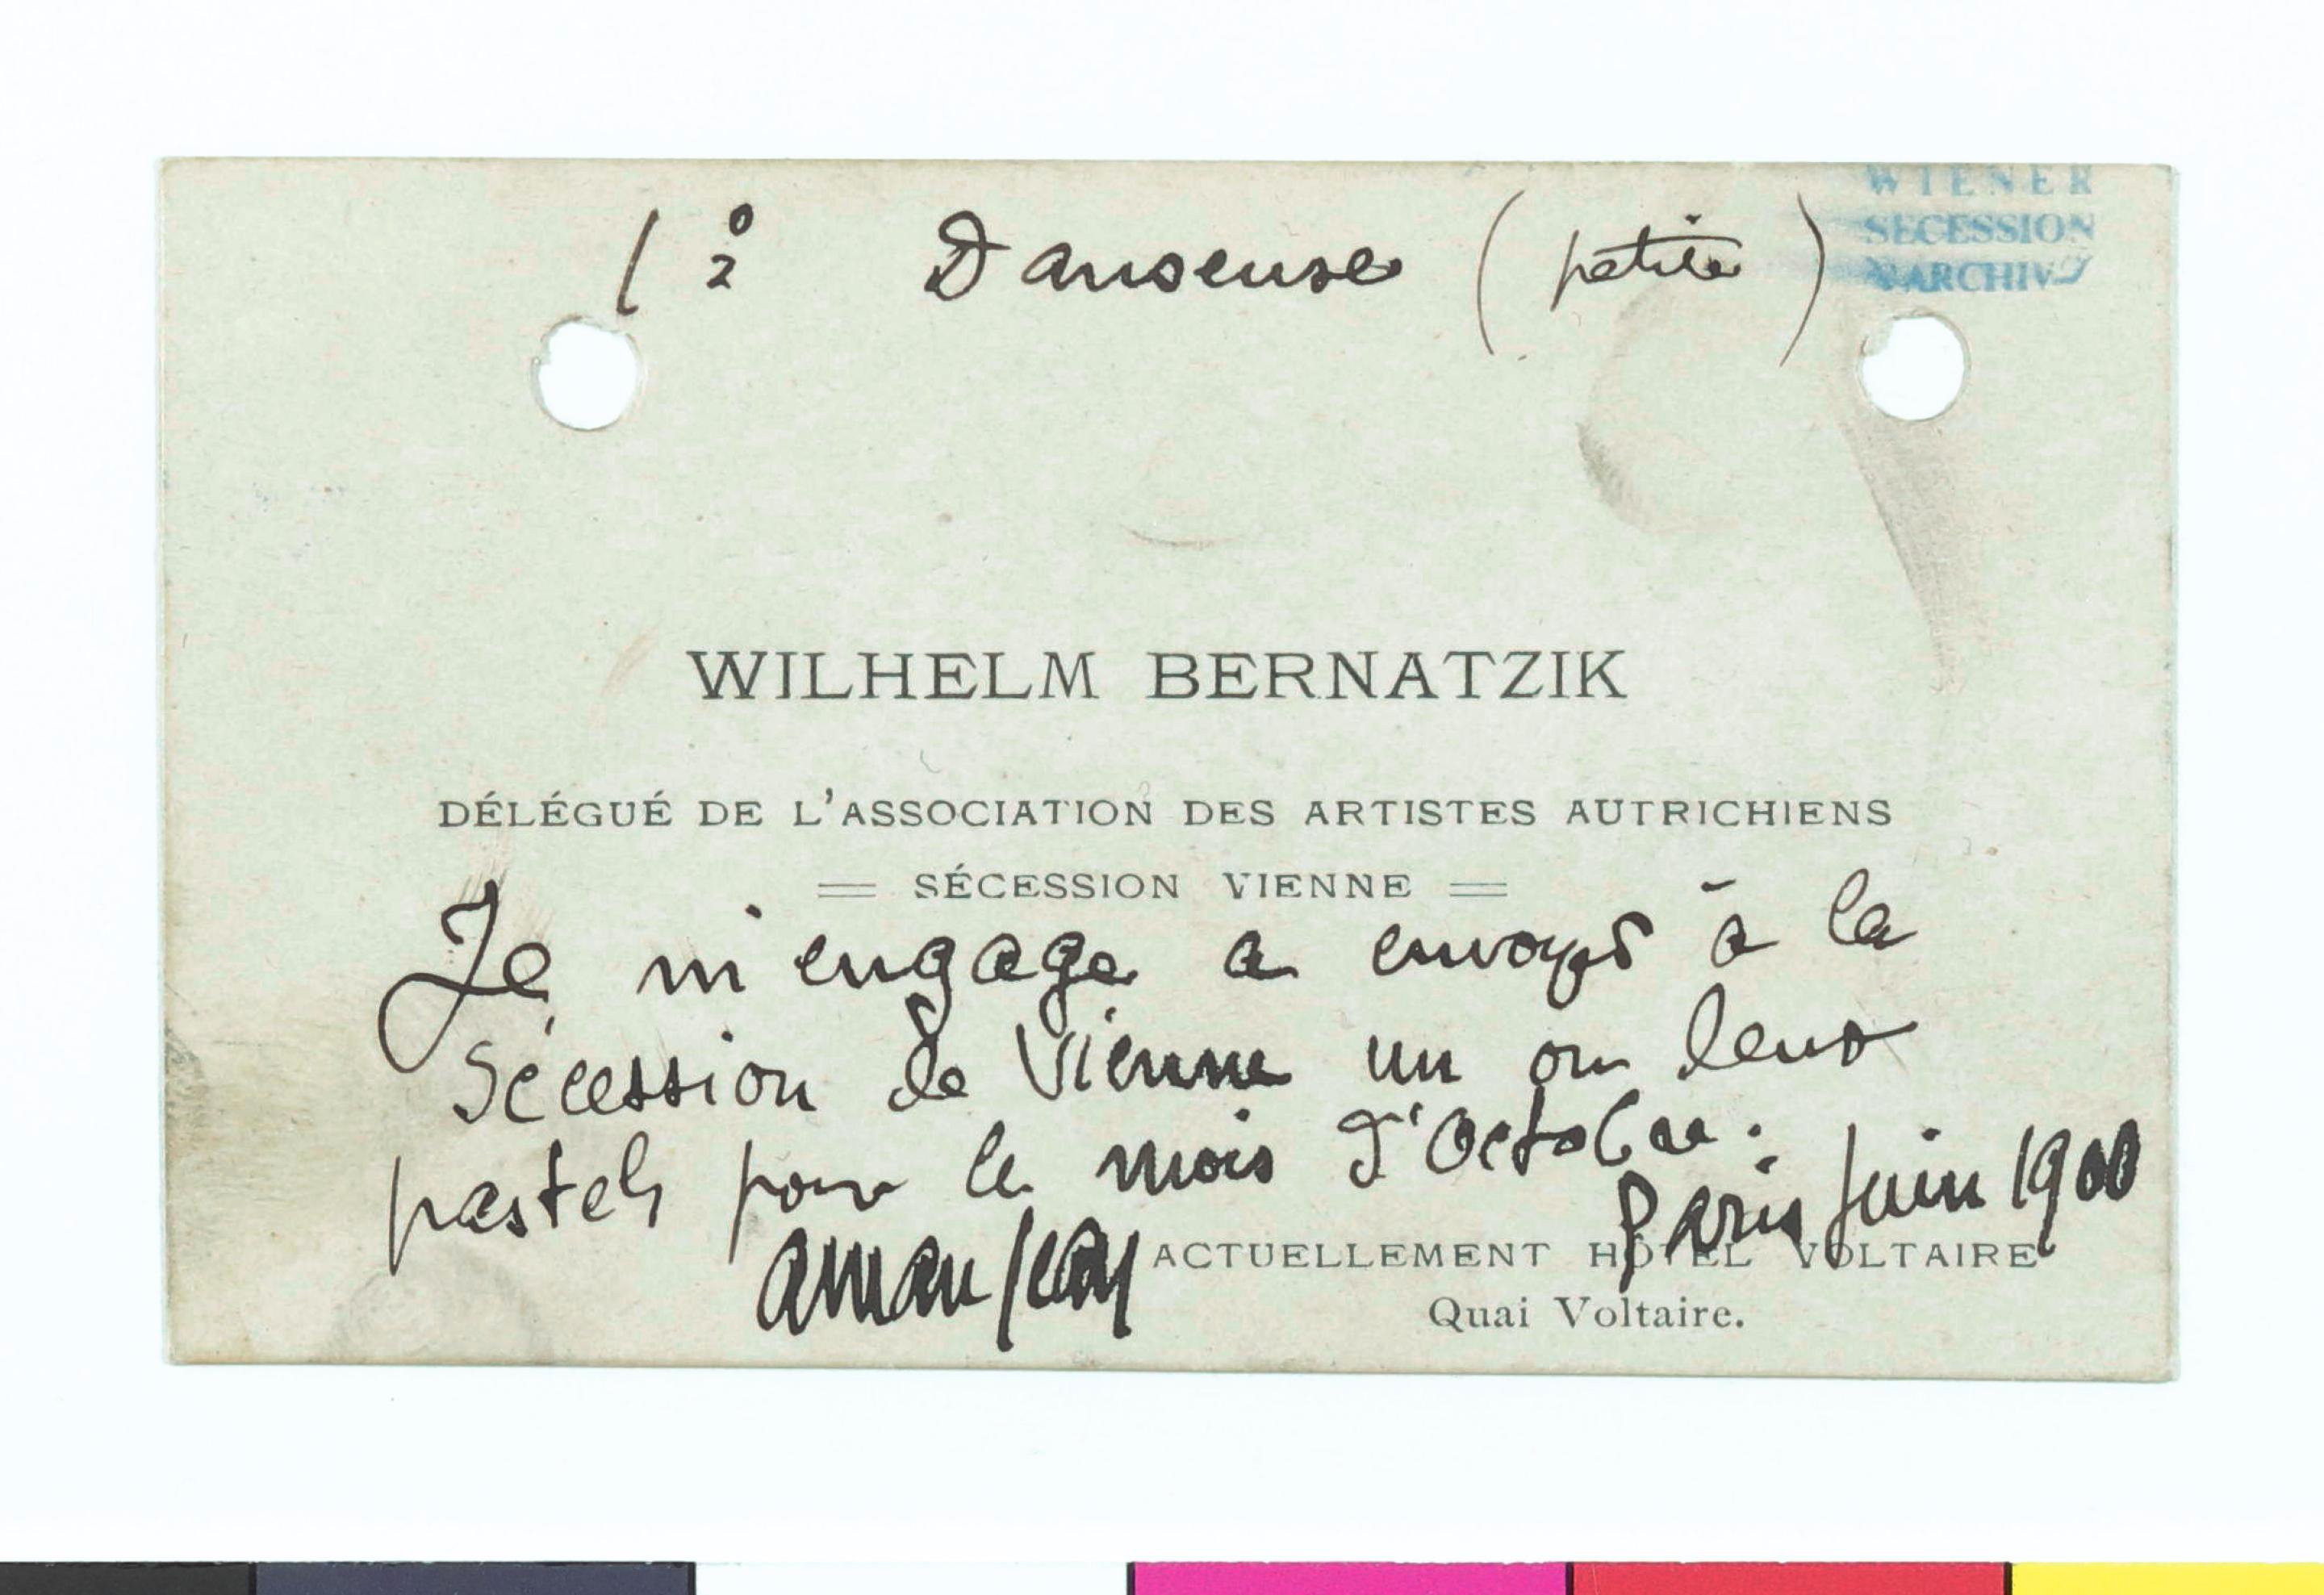 1º Danseuse (petite)
WIENER
SECESSION
ARCHIV
WILHELM BERNATZIK
DÉLÉGUÉ DE L'ASSOCIATION DES ARTISTES AUTRICHIENS
= SÉCESSION VIENNE =
Je m'engage a envoyer à la
Sécession de Vienne un ou deux
pastels pour le mois d'Octobre.
Paris Juin 1900
aman Jean
ACTUELLEMENT HÔTEL VOLTAIRE
Quai Voltaire.